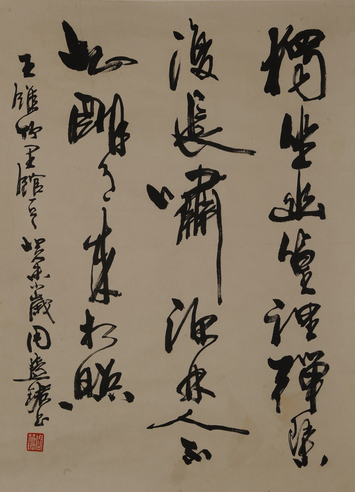 獨坐幽篁裡彈琴
復長嘯深林人不
知明月來相照
王維竹里館癸未歲周書